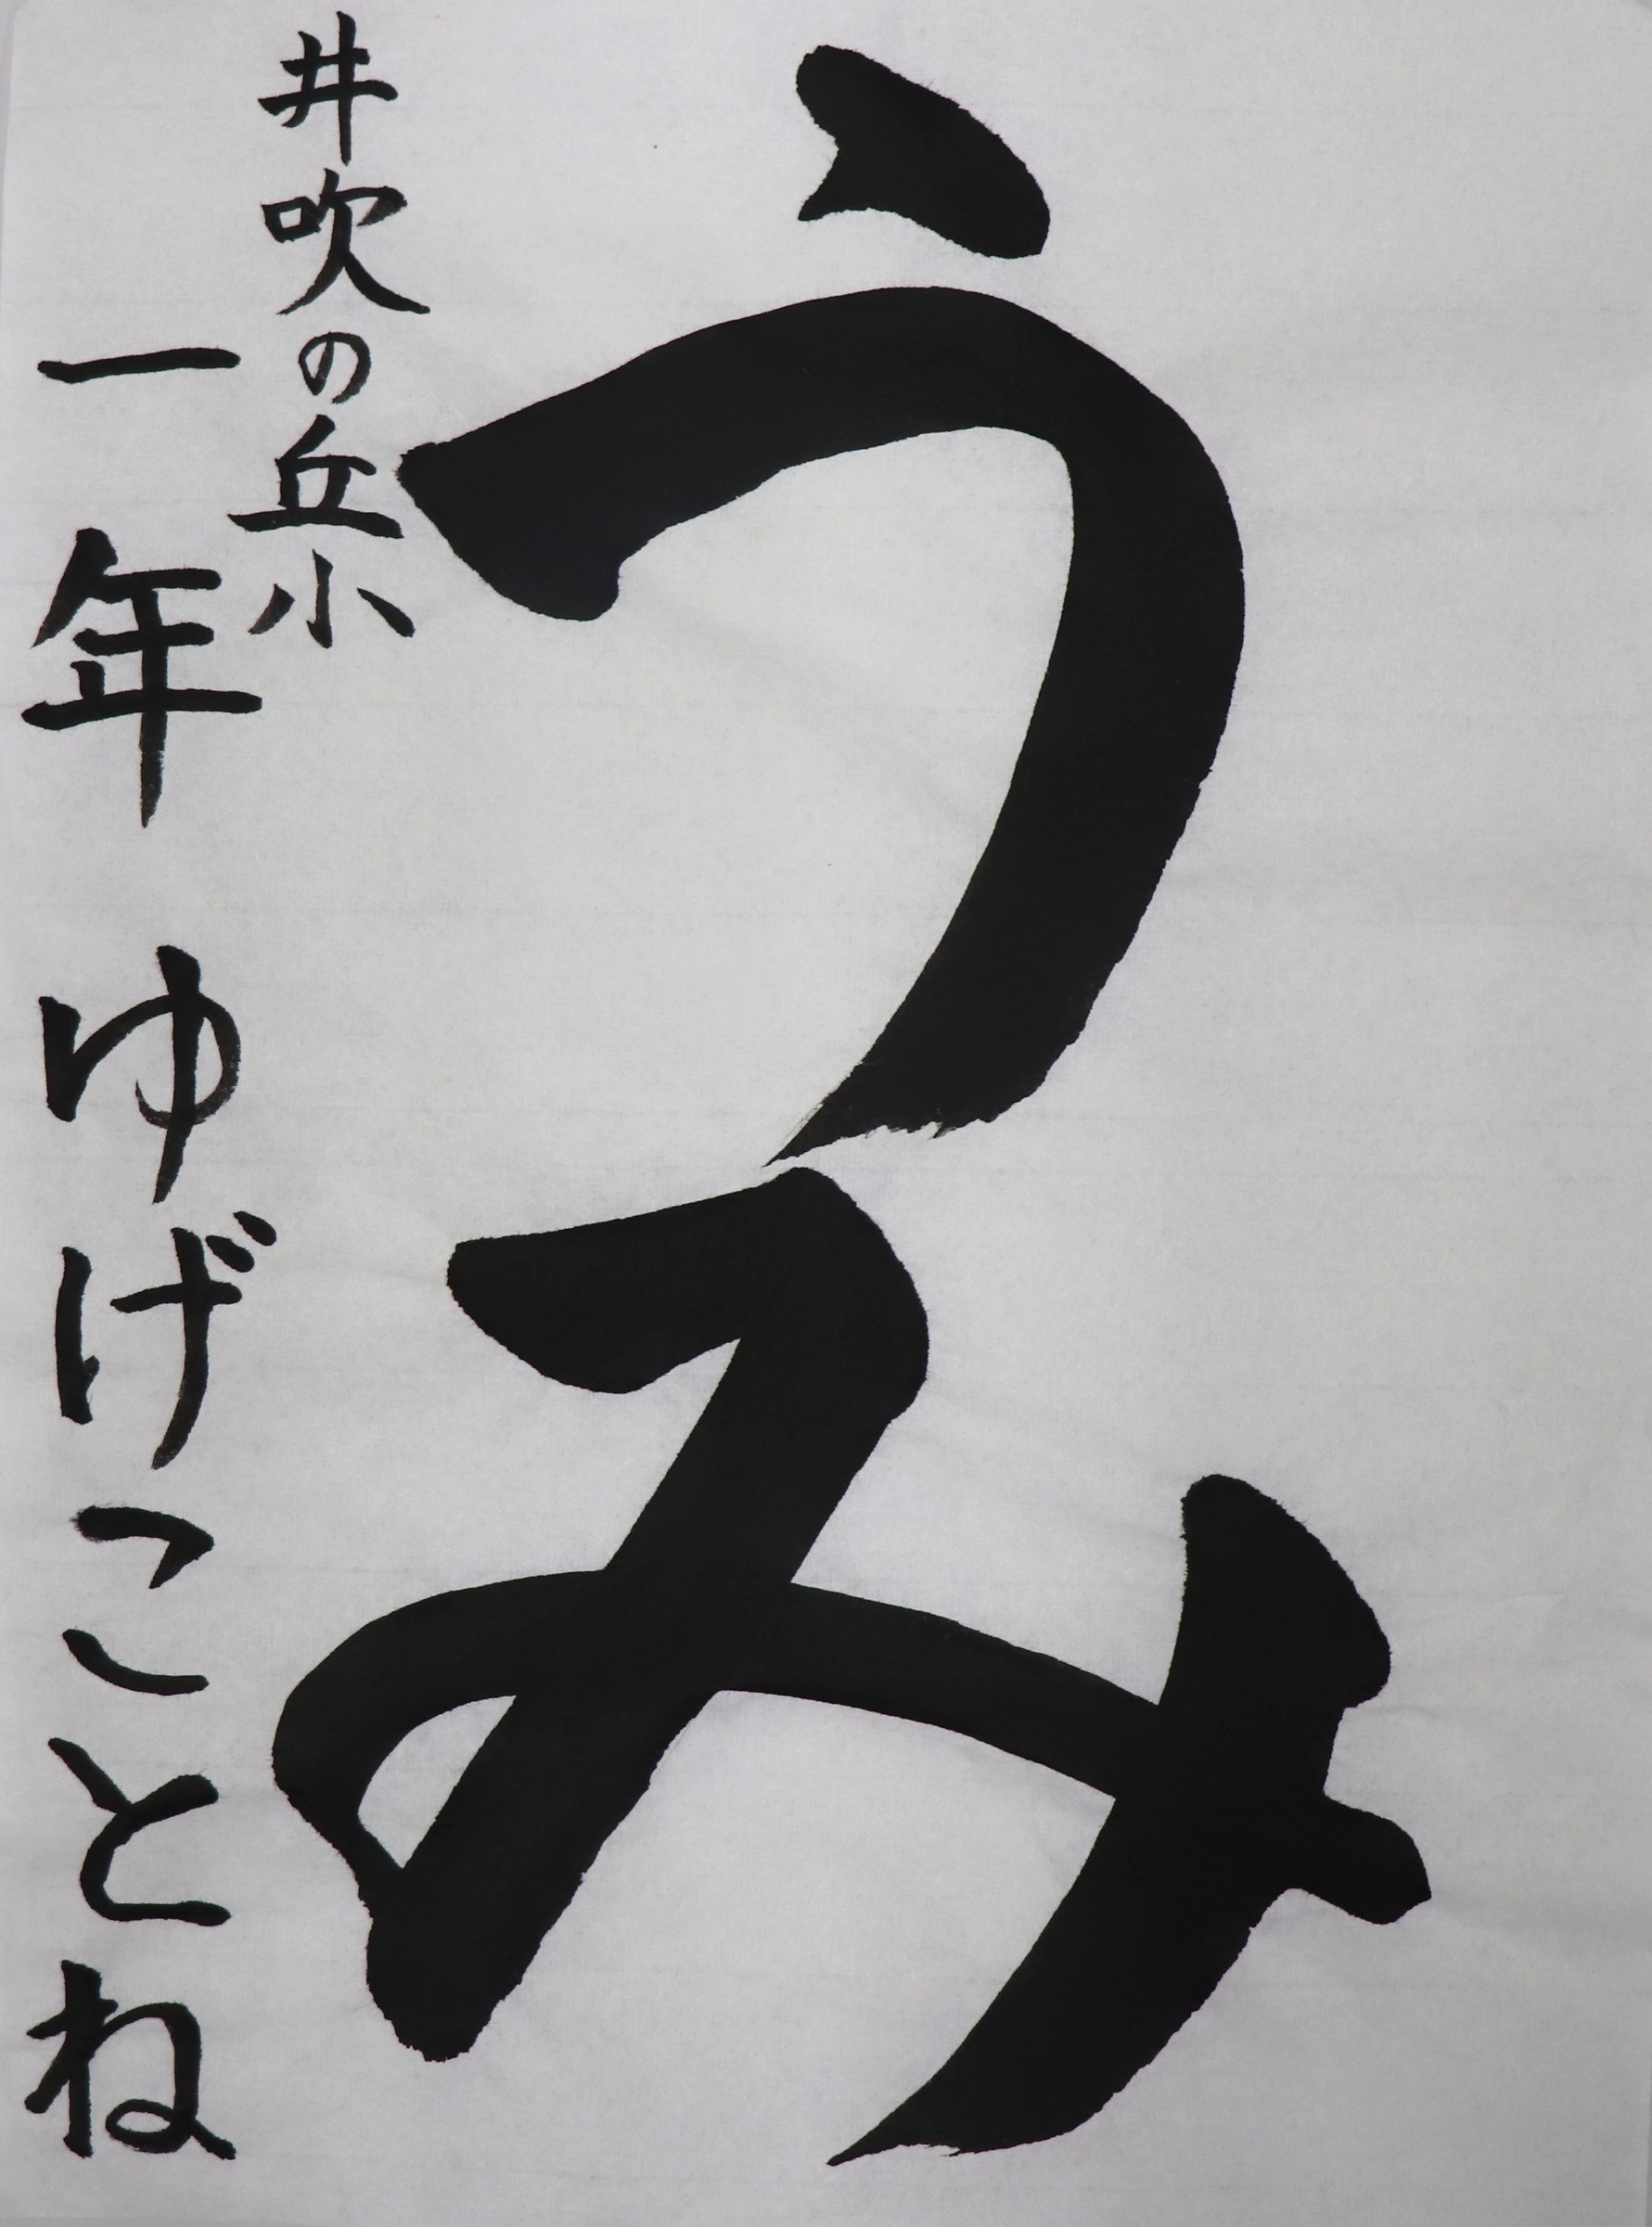 うみ
井吹の丘小
一年 ゆげことね